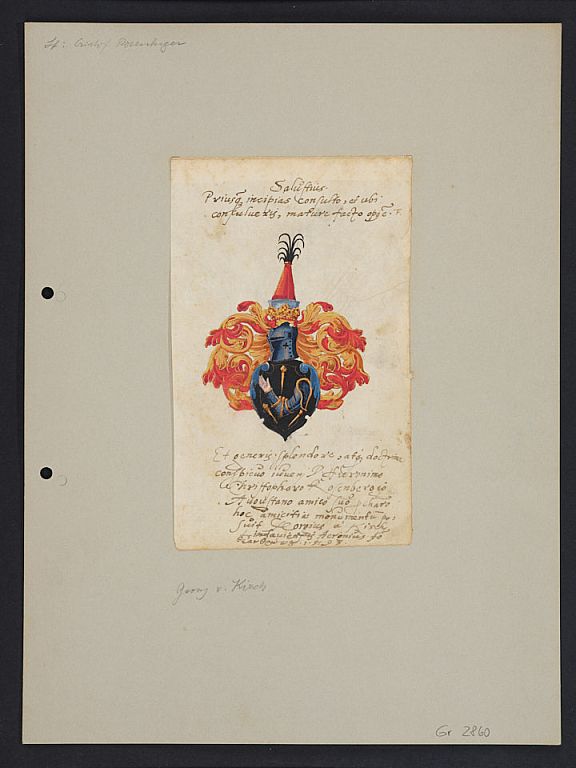 St: Cristof Rosenberger
Salustius.
Priusq̃ incipias consulto, et ubi
consulueris, mature facto opus.
Et generis splendore, atq́ doctrina
conspicuo iuveni D. Hieronimo
Christophoro Rosenbergio
Augustano amico suo charo
hoc amicitiæ monumentum po:
suit Georgius à Kirch
Georg v. Kirch
Gr 2860